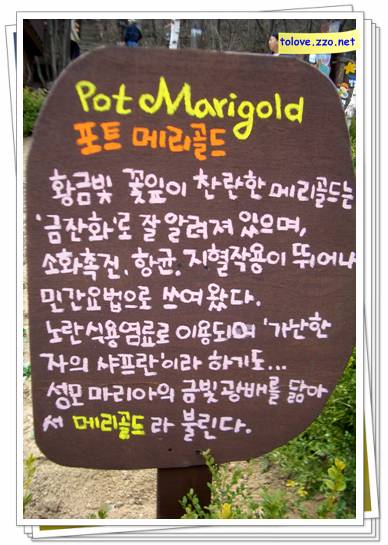 tolove.zzo.net
Pot Marigold
포트 메리골드
황금빛 꽃잎이 찬란한 메리골드는
'금잔화'로 잘 알려져 있으며,
소화촉진, 항균, 지혈작용이 뛰어나
민간요법으로 쓰여 왔다.
노란식용염료로 이용되며 '가난한
자의 샤프란'이라 하기도...
성모 마리아의 금빛광배를 닮아
서 메리골드라 불린다.